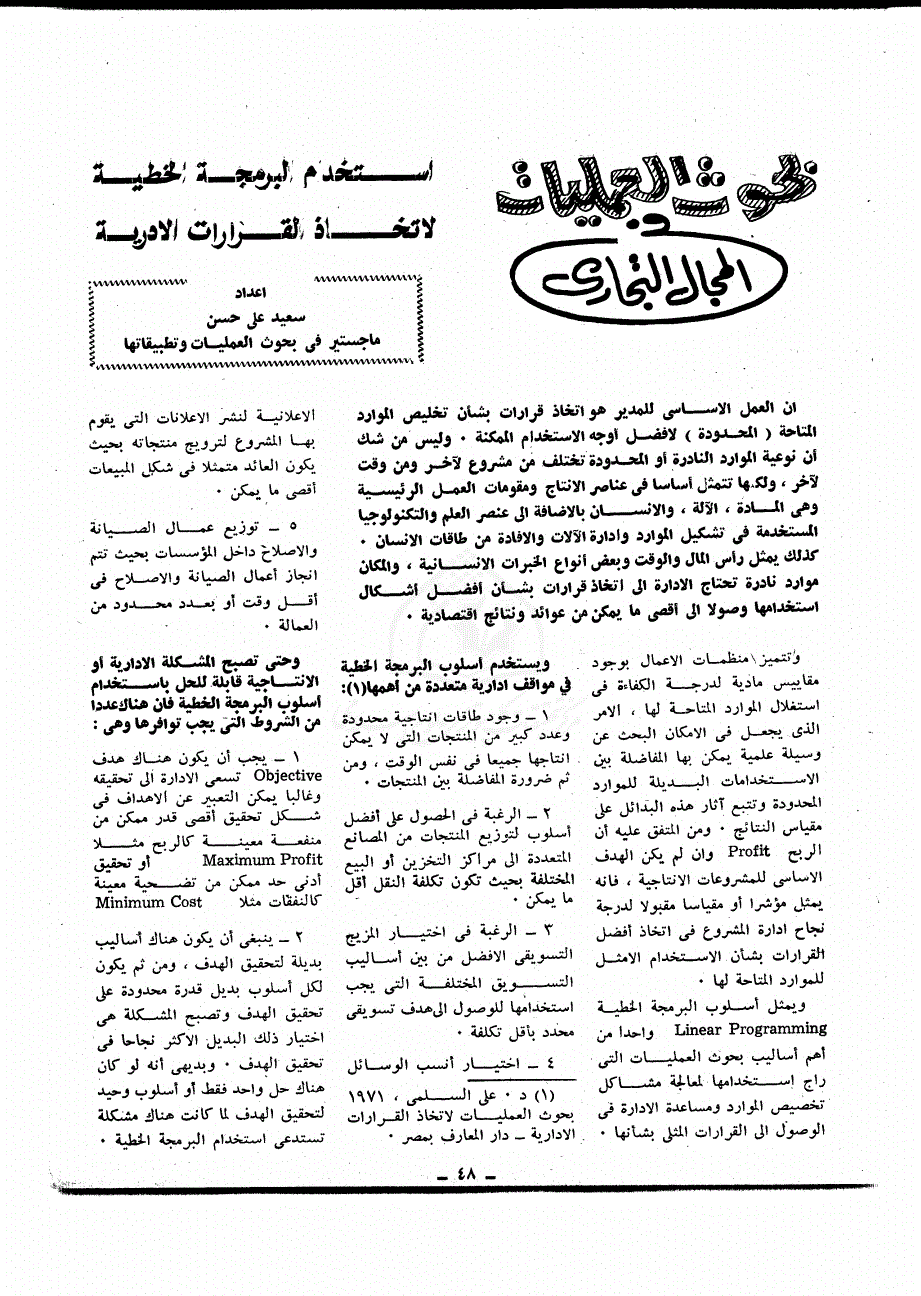 بحوث العمليات
و
المجال التجارى
استخدم البرمجة الخطية
لاتخاذ القرارات الادرية
اعداد
سعيد على حسن
ماجستير فى بحوث العمليات وتطبيقاتها
ان العمل الاساسى للمدير هو اتخاذ قرارات بشأن تخليص الموارد
المتاحة ( المحدودة ) لافضل أوجه الاستخدام الممكنة ٠ وليس من شك
أن نوعية الموارد النادرة أو المحدودة تختلف من مشروع لآخر ومن وقت
لآخر ، ولكنها تتمثل أساسا فى عناصر الانتاج ومقومات العمل الرئيسية
وهى المادة ، الآلة ، والانسان بالاضافة الى عنصر العلم والتكنولوجيا
المستخدمة فى تشكيل الموارد وادارة الآلات والافادة من طاقات الانسان ٠
كذلك يمثل رأس المال والوقت وبعض أنواع الخبرات الانسانية ، والمكان
موارد نادرة تحتاج الادارة الى اتخاذ قرارات بشأن أفضل أشكال
استخدامها وصولا الى أقصى ما يمكن من عوائد ونتائج اقتصادية ٠
وتتميز منظمات الاعمال بوجود
مقاييس مادية لدرجة الكفاءة فى
استغلال الموارد المتاحة لها ، الامر
الذى يجعل فى الامكان البحث عن
وسيلة علمية يمكن بها المفاضلة بين
الاستخدامات البديلة للموارد
المحدودة وتتبع آثار هذه البدائل على
مقياس النتائج ٠ ومن المتفق عليه أن
الربح Profit وان لم يكن الهدف
الاساسى للمشروعات الانتاجية ، فانه
يمثل مؤشرا أو مقياسا مقبولا لدرجة
نجاح ادارة المشروع فى اتخاذ أفضل
القرارات بشأن الاستخدام الامثل
للموارد المتاحة لها ٠
ويمثل أسلوب البرمجة الخطية
Linear Programming واحدا من
أهم أساليب بحوث العمليات التى
راج إستخدامها لمعالجة مشاكل
تخصيص الموارد ومساعدة الادارة فى
الوصول الى القرارات المثلى بشأنها ٠
ويستخدم أسلوب البرمجة الخطية
فى مواقف ادارية متعددة من أهمها(١):
١ ـ وجود طاقات انتاجية محدودة
وعدد كبير من المنتجات التى لا يمكن
انتاجها جميعا فى نفس الوقت ، ومن
ثم ضرورة المفاضلة بين المنتجات ٠
٢ ـ الرغبة فى الحصول على أفضل
أسلوب لتوزيع المنتجات من المصانع
المتعددة الى مراكز التخزين أو البيع
المختلفة بحيث تكون تكلفة النقل أقل
ما يمكن ٠
٣ ـ الرغبة فى اختيار المزيج
التسويقى الافضل من بين أساليب
التسويق المختلفة التى يجب
استخدامها للوصول الى هدف تسويقى
محدد بأقل تكلفة ٠
٤ ـ اختيار أنسب الوسائل
(١) د ٠ على السلمى ، ١٩٧١
بحوث العمليات لاتخاذ القرارات
الادارية ـ دار المعارف بمصر ٠
الاعلانية لنشر الاعلانات التى يقوم
بها المشروع لترويج منتجاته بحيث
يكون العائد متمثلا فى شكل المبيعات
أقصى ما يمكن ٠
٥ ـ توزيع عمال الصيانة
والاصلاح داخل المؤسسات بحيث تتم
انجاز أعمال الصيانة والاصلاح فى
أقل وقت أو بعدد محدود من
العمالة ٠
وحتى تصبح المشكلة الادارية أو
الانتاجية قابلة للحل باستخدام
أسلوب البرمجة الخطية فان هناك عددا
من الشروط التى يجب توافرها وهى :
١ ـ يجب أن يكون هناك هدف
Objective تسعى الادارة الى تحقيقه
وغالبا يمكن التعبير عن الاهداف فى
شكل تحقيق أقصى قدر ممكن من
منفعة معينة كالربح مثلا
Maximum Profit أو تحقيق
أدنى حد ممكن من تضحية معينة
كالنفقات مثلا Minimum Cost
٢ ـ ينبغى أن يكون هناك أساليب
بديلة لتحقيق الهدف ، ومن ثم يكون
لكل أسلوب بديل قدرة محدودة على
تحقيق الهدف وتصبح المشكلة هى
اختيار ذلك البديل الاكثر نجاحا فى
تحقيق الهدف ٠ وبديهى أنه لو كان
هناك حل واحد فقط أو أسلوب وحيد
لتحقيق الهدف لما كانت هناك مشكلة
تستدعى استخدام البرمجة الخطية ٠
ـ ٤٨ ـ